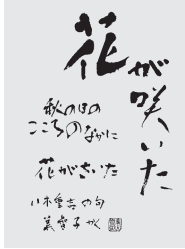 花が咲いた
秋の日の
こころのなかに
花がさいた
八木重吉の句
美智子かく